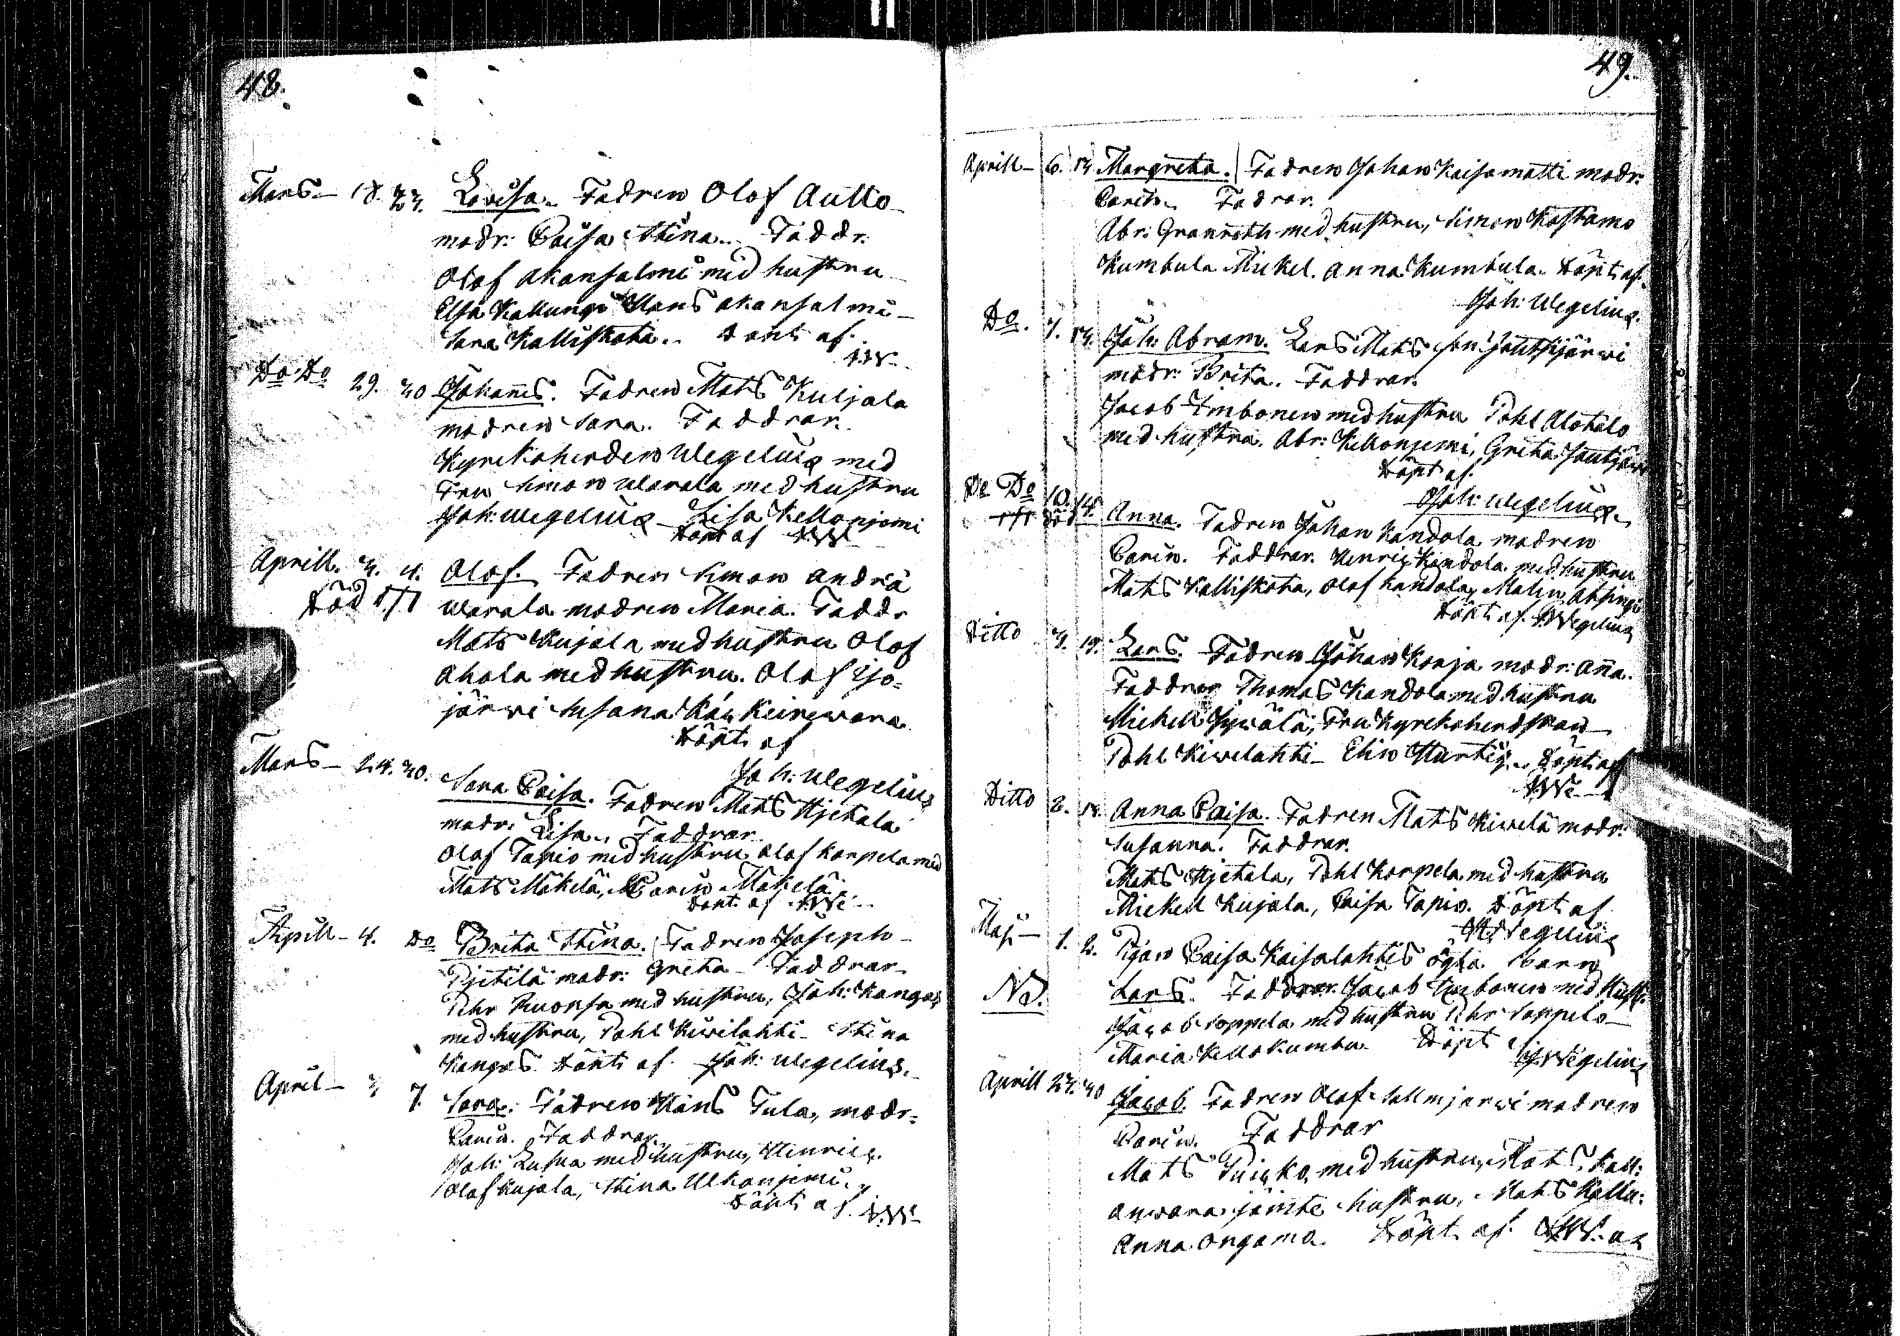 48.
Mars 18. 23. Lovisa. Fadren Olof Autto
modr: Caisa Stina. Faddr.
Olof Akansalmi med hustru
Elsa Kallungi Hans Akansalmi
Sara Kalliskota. Döpt af
J.W.
Do Do 29. 30 Johannes. Fadren Mats Kuljala
modren Sara. Faddrar.
Kyrckoherden Wegelius med
Fru Simon Warala med hustru
Joh: Wegelius Lisa Kellonjemi
Döpt af J.W.
Aprill. 3. 4. Olof. Fadren Simon Andrä
Död Warala modren Maria. Faddr
Mats Kujala med hustru Olof
Ahola med hustru. Olof
järwi Susana
Döpt af
Joh: Wegelius
Mars 24. 30. Sara Caisa. Fadren Mats Hjetala
modr: Lisa. Faddrar.
Olof Tapio med hustru, Olof Karpela med
Mats Mäkelä, Carin Mäkelä
Döpt af J.W.
Aprill 4. Do Brita Stina. Fadren Joseph
Pjetilä modr: Greta Faddrar
Pehr Ruonsa med hustru, Joh: Kangas
med hustru, Pahl Kiwilahti Stina
Kangas Döpt af Joh: Wegelius.
April 3 7. Sara. Fadren Hans Tula, modr:
Carin. Faddrar.
Joh: Lusua med hustru, Henric
Olof Kujala, Stina Ulkonjemi
Döpt af J.W.
49.
Aprill 6. 13. Margreta. Fadren Johan Kaisamatti modr:
Carin. Fadrar.
Abr: Granroth med hustru, Simon Kostamo
Kumbula Mickel. Anna Kumbula. Döpt af
Joh: Wegelius.
Do. 7. 13. Joh: Abram. Lars Mats son Joutsijärwi
modr: Brita. Faddrar.
Jacob Imbonen med hustru Pahl Alatalo
med hustru. Abr: Kellonjemi, Greta Joutsijärwi
Döpt af
Joh: Wegelius
Do Do 10. 14. Anna. Fadren Johan Kandola modren
Död
Carin. Faddrar. Henric Kandola med hustru
Mats Kalliskota, Olof Kandola, Malin
Döpt af J. Wegelius
Ditto 9. 19. Lars. Fadren Johan Korja modr: Anna.
Faddrar Thomas Kandola med hustru
Mickell Jywälä, Fru Kyrckoherdskan
Pahl Kiwelahti Elin Döpt af
J.W.
Ditto 2. Anna Caisa. Fadren Mats Kiwelä modr:
Susanna. Faddrar.
Mats Hjetala, Pahl Karpela med hustru
Mickell Kujala, Caisa Tapio. Döpt af
J. Wegelius
Maj 1. 2. Pigan Caisa Kaisalahtis ägta barn
NB. Lars. Faddrar. Jacob Imbonen med hust:
Jacob Soppela med hustru Pehr Soppela
Maria Kellokumbu Döpt af
J. Wegelius
Aprill 27. 30 Jacob. Fadren Olof Sallmjärwi modren
Carin. Faddrar
Mats med hustru, Mats Kall:
anwara jämte hustru, Mats Kallu:
Anna Ongamo. Döpt af J.W.